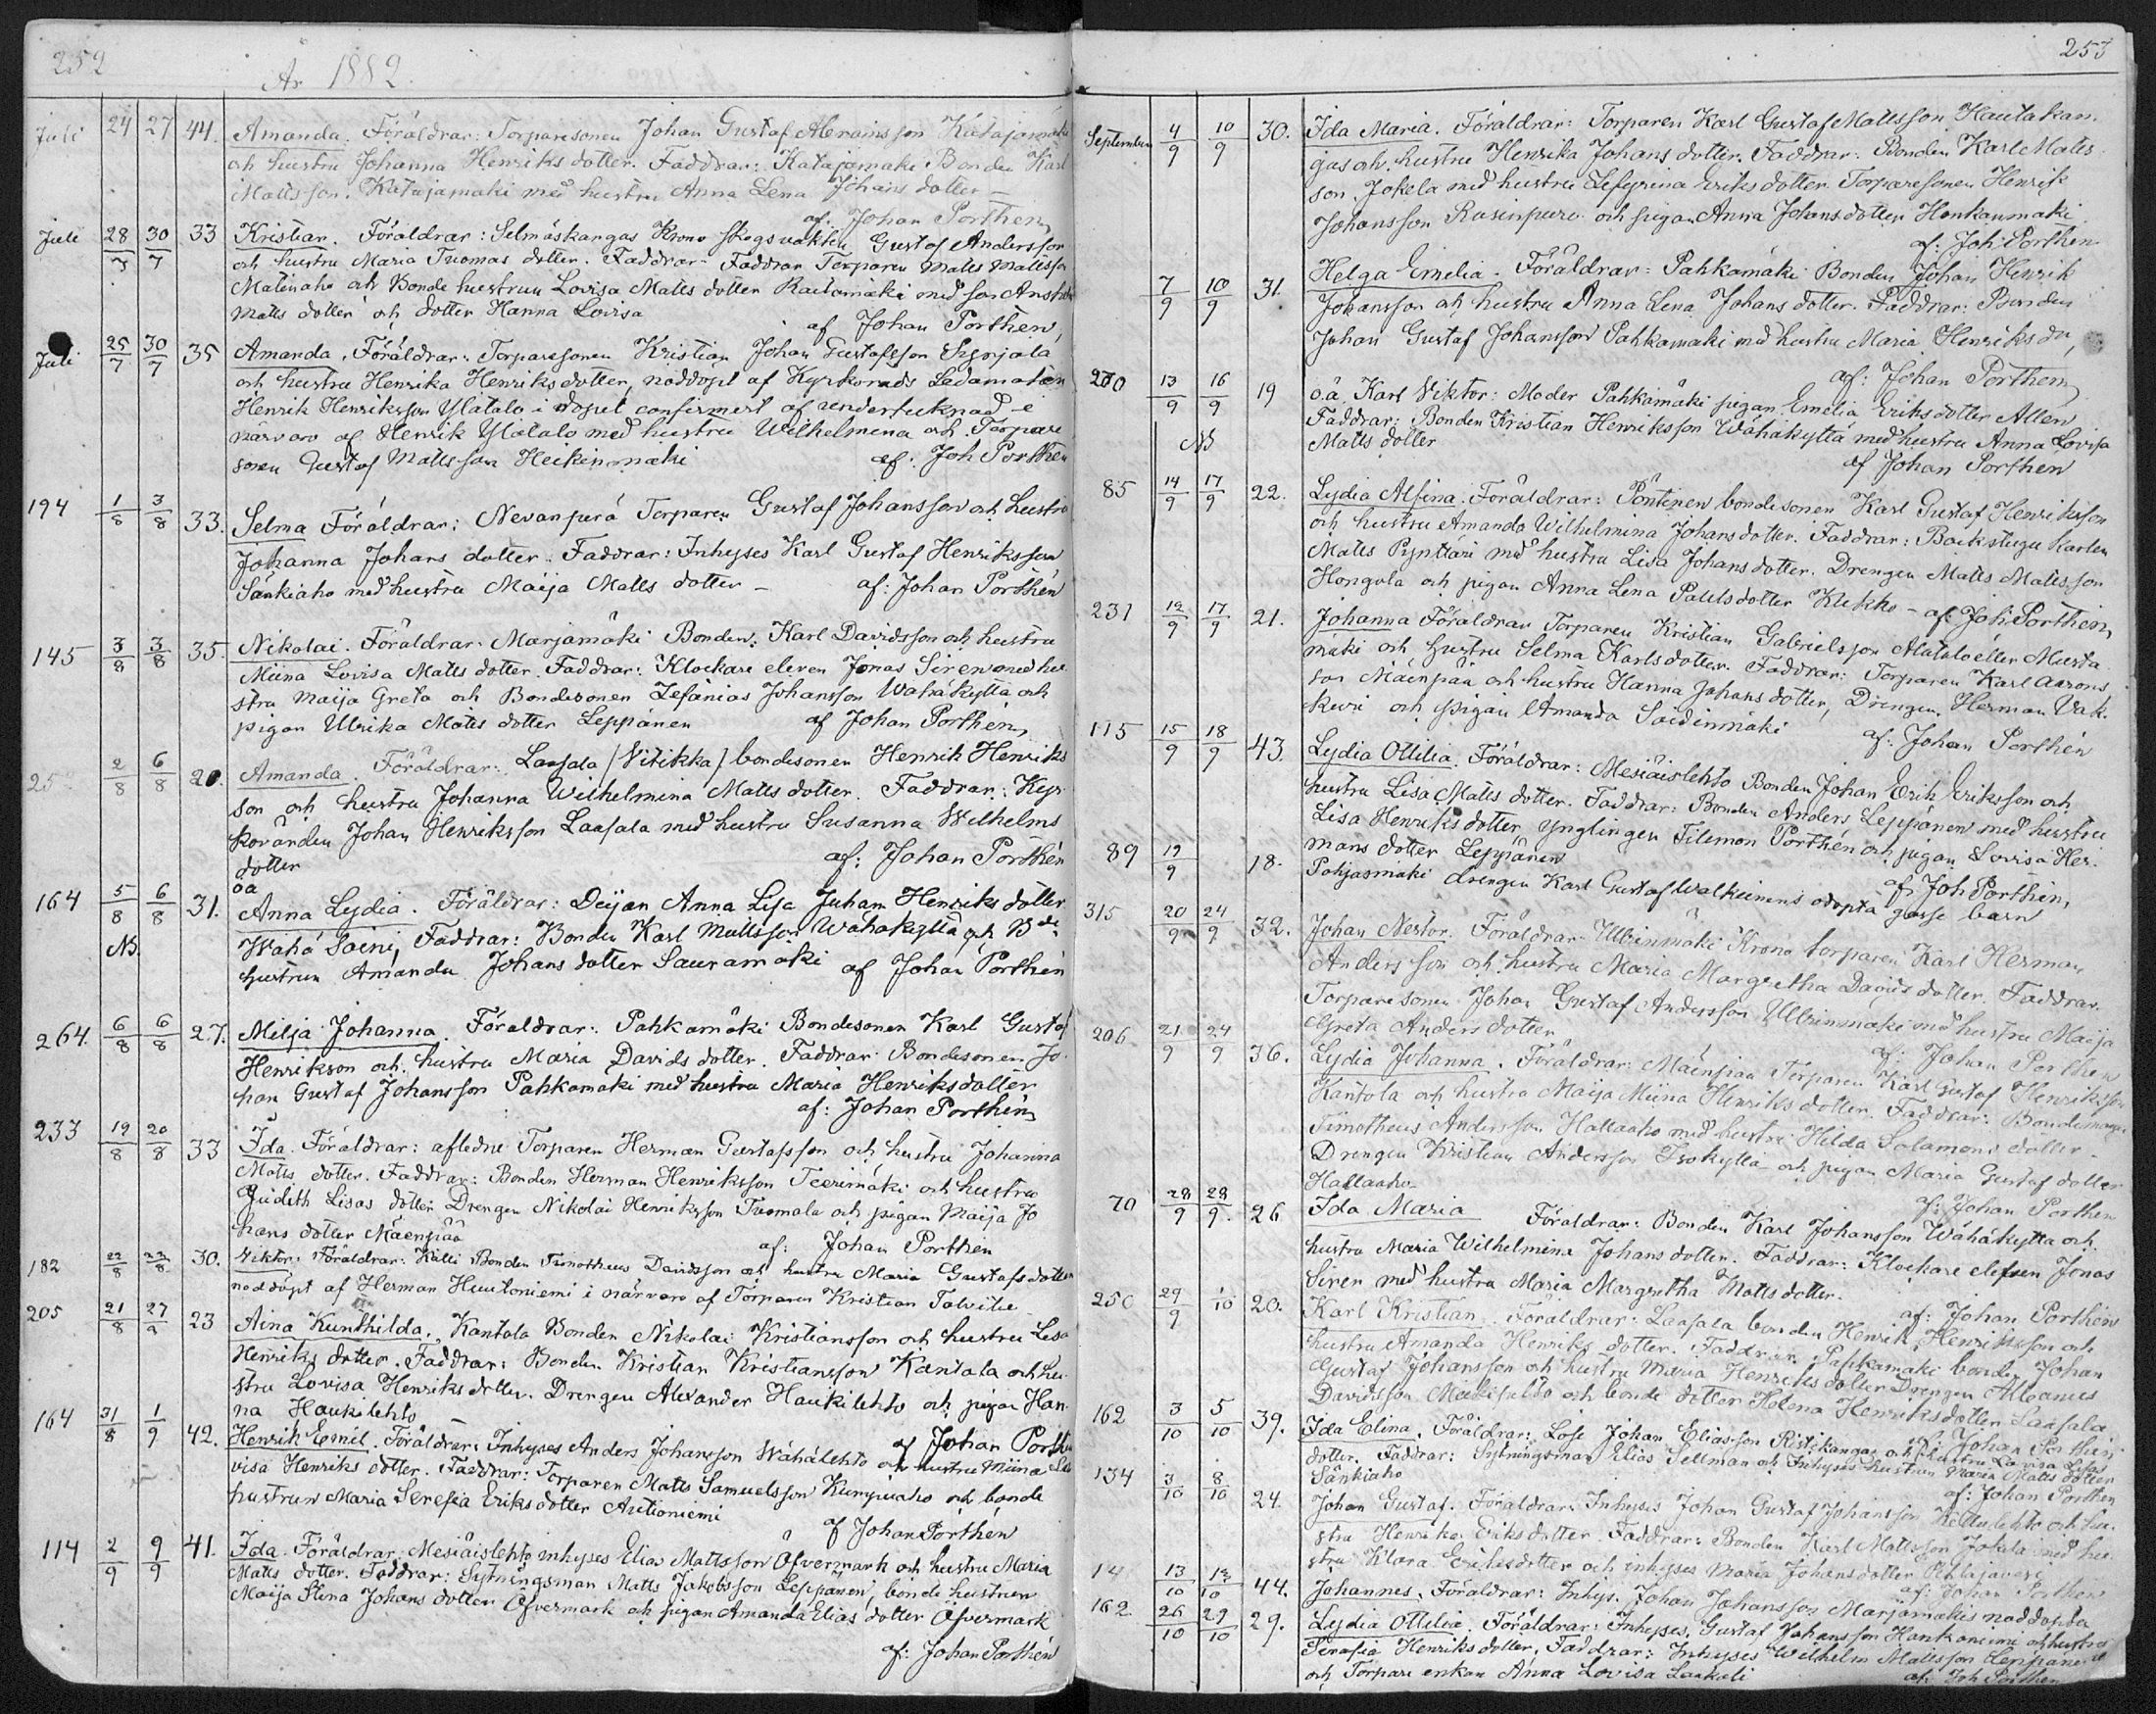 252
År 1882.
Juli 24 27 44. Amanda. Föräldrar: Torparesonen Johan Gustaf Katajamäki
och hustru Johanna Henriks dotter. Faddrar: Katajamäki Bonden Karl
Mattsson. Katajamäki med hustru Anna Lena Johans dotter –
af. Johan Porthen
Juli 28/7 30/7 33 Kristian. Föräldrar: Selmäskangas Krono skogsvakten Gustaf Andersson
och hustru Maria Tuomas dotter. Faddrar- Faddrar Torparen Matts Mattsson
Matinaho och Bonde hustrun Lovisa Matts dotter Rautamäki med
Matts dotter och dotter Hanna Lovisa
af Johan Porthén,
Juli 25/7 30/7 35 Amanda. Föräldrar: Torparesonen Kristian Johan Gustafsson
och hustru Henrika Henriksdotter, nöddöpt af Kyrkoråds Ledamoten
Henrik Henriksson Ylätalo i dopet confirmert af undertecknad i
närvaro af Henrik Ylätalo med hustru Wilhelmina och Torpare
sonen Gustaf Mattsson Heikinmäki af: Joh Porthen
194 1/8 3/8 33. Selma Föräldrar: Nevanperä Torparen Gustaf Johansson och hustru
Johanna Johans dotter. Faddrar: Inhyses Karl Gustaf Henriksson
Sänkiaho med hustru Maija Matts dotter – af: Johan Porthén
145 3/8 3/8 35. Nikolai. Föräldrar: Marjamäki Bonden. Karl Davidsson och hustru
Miina Lovisa Matts dotter. Faddrar: Klockare eleven Jonas Siren med hu
stru Maija Greta och Bondesonen Zefanias Johansson Wähäkyttä och
pigan Ulrika Matts dotter Leppänen af Johan Porthén,
25 2/8 6/8 20. Amanda. Föräldrar: Laasala (Vitikka) bondesonen Henrik Henriks
son och hustru Johanna Wilhelmina Matts dotter. Faddrar: Kyr
kovärden Johan Henriksson Laasala med hustru Susanna Wilhelms
dotter af: Johan Porthén
164 5/8 6/8 31. oä
Anna Lydia. Föräldrar: Deijan Anna Lisa Juhan Henriks dotter
NB. Wähä Soini, Faddrar: Bonden Karl Mattsson Wähäkyttä och Bde
hustrun Amanda Johans dotter Sauramäki af Johan Porthén
264. 6/8 6/8 27. Milja Johanna. Föräldrar: Pahkamäki Bondesonen Karl Gustaf
Henrikson och hustru Maria Davids dotter. Faddrar: Bondesonen Jo
han Gustaf Johansson Pahkamäki med hustru Maria Henriksdotter
af: Johan Porthén
233 19/8 20/8 33 Ida. Föräldrar: aflidne Torparen Herman Gustafsson och hustru Johanna
Matts dotter. Faddrar: Bonden Herman Henriksson Teerimäki och hustru
Judith Lisas dotter Drengen Nikolai Henriksson Tuomala och pigan Maija Jo
hans dotter Mäenpää af: Johan Porthén
182 22/8 22/8 30. Viktor. Föräldrar: Kalli Bonden Timotheus Davidsson och hustru Maria Gustafs dotter
nöddöpt af Herman Huutoniemi i närvaro af Torparen Kristian Talvitie
205 21/8 27/9 23 Aina Kunthilda. Kantola Bonden Nikolai Kristiansson och hustru Lisa
Henriks dotter. Faddrar: Bonden Kristian Kristiansson Kantola och hu
stru Lovisa Henriks dotter. Drengen Alexander Haukilehto och pigan Han
na Haukilehto af Johan Porthen
164 31/8 1/9 42. Henrik Eemil. Föräldrar: Inhyses Anders Johansson Wähälehto och hustru Miina Lo
visa Henriks dotter. Faddrar: Torparen Matts Samuelsson Kumpuaho och bonde
hustrun Maria Serefia Eriks dotter Autioniemi
af Johan Porthén
114 2/9 9/9 41. Ida. Föräldrar: Mesiäislehto inhyses Elias Mattsson Öfvermark och hustru Maria
Matts dotter. Faddrar: Sytningsman Matts Jakobsson Leppänen, bonde hustrun
Maija Stina Johans dotter Öfvermark och pigan Amanda Elias dotter Öfvermark
af: Johan Porthén
253
September 4/9 10/9 30. Ida Maria. Föräldrar: Torparen Karl Gustaf Mattsson Hautakan
gas och hustru Henrika Johans dotter. Faddrar: Bonden Karl Matts
son. Jokela med hustru Sefyrina Eriks dotter. Torparesonen Henrik
Johansson Rasinpuro och pigan Anna Johans dotter Honkanmäki
af: Joh: Porthen
7/9 10/9 31. Helga Emelia. Föräldrar: Pahkamäki Bonden Johan Henrik
Johansson och hustru Anna Lena Johans dotter. Faddrar: Bonden
Johan Gustaf Johansson Pahkamäki med hustru Maria Henriks do,
af: Johan Porthen
230 13/9 16/9 19 o.ä. Karl Viktor: Moder Pahkamäki pigan Emelia Eriks dotter Allen
Faddrar: Bonden Kristian Henriksson Wähäkyttä med hustru Anna Lovisa
NB Matts dotter
af Johan Porthen
85 14/9 17/9 22. Lydia Alfina. Föräldrar: Pöntinen bondesonen Karl Gustaf Henriksson
och hustru Amanda Wilhelmina Johans dotter. Faddrar: Backstugu karlen
Matts Pynttäri med hustru Lisa Johans dotter. Drengen Matts Mattsson
Hongola och pigan Anna Lena Pauls dotter Kukko – af: Joh: Porthén,
231 12/9 17/9 21. Johanna Föräldrar Torparen Kristian Gabrielsson Alatalo eller Musta
mäki och hustru Selma Karls dotter. Faddrar: Torparen Karl Aarons
son Mäenpää och hustru Hanna Johans dotter, Drengen Herman Vak
keri och pigan Amanda Soidinmäki af: Johan Porthén
115 15/9 18/9 43. Lydia Ottilia. Föräldrar: Mesiäislehto Bonden Johan Erik Eriksson och
hustru Lisa Matts dotter. Faddrar: Bonden Anders Leppänen med hustru
Lisa Henriks dotter, ynglingen Filemon Porthén och pigan Lovisa Her
mans dotter Leppänen af: Joh Porthén,
89 19/9 18. Pohjasmäki drengen Karl Gustaf Walkeinens odöpta gosse barn
315 20/9 24/9 32. Johan Nestor. Föräldrar- Ullvinmäki Krono torparen Karl Herman
Anders son och hustru Maria Margretha Davids dotter. Faddrar.
Torparesonen Johan Gustaf Andersson Ullvinmäki med hustru Maija
Greta Anders dotter af: Johan Porthen
206 21/9 24/9 36. Lydia Johanna. Föräldrar: Mäenpää Torparen Karl Gustaf Henriksson
Kantola och hustru Maija Miina Henriks dotter. Faddrar: Bondemågen
Timotheus Andersson Hallaaho med hustru Hilda Salamons dotter.
Drengen Kristian Andersson Isokyttä och pigan Maria Gustaf dotter
Hallaaho af: Johan Porthen
70 28/9 28/9 26 Ida Maria Föräldrar: Bonden Karl Johansson Wähäkyttä och
hustru Maria Wilhelmina Johans dotter. Faddrar: Klockare eleven Jonas
Siren med hustru Maria Margretha Matts dotter.
af: Johan Porthén
250 29/9 1/10 20. Karl Kristian. Föräldrar: Laasala bonden Henrik Henriksson och
hustru Amanda Henriks dotter. Faddrar: Pahkamäki bonden Johan
Gustaf Johansson och hustru Maria Henriks dotter Drengen Albanus
Davidsson och bonde dotter Helena Henriks dotter Laasala.
af Johan Porthen
162 3/10 5/10 39. Ida Elina. Föräldrar: Lose Johan Eliasson Ristikangas och hustru Lovisa Lisas
dotter. Faddrar: Sytningsman Elias Sellman och Inhyses hustrun Maria Matts dotter
Sänkiaho af: Johan Porthen
134 3/10 8/10 24. Johan Gustaf. Föräldrar: Inhyses Johan Gustaf Johansson Kettulehto och hu
stru Henrika Eriks dotter. Faddrar: Bonden Karl Mattsson Jokela med hu
stru Klara Eriks dotter och inhyses Maria Johans dotter
af: Johan Porthen
14 13/10 13/10 44. Johannes. Föräldrar: Inhys. Johan Johansson Marjamäkis nöddöpta
162. 26/10 29/10 29. Lydia Ottilia. Föräldrar: Inhyses, Gustaf Johansson Hankaniemi och hustru
Serafia Henriks dotter. Faddrar: Inhyses Wilhelm Mattsson Leppänen
och Torpare enkan Anna Lovisa Laakoli af: Joh Porthen